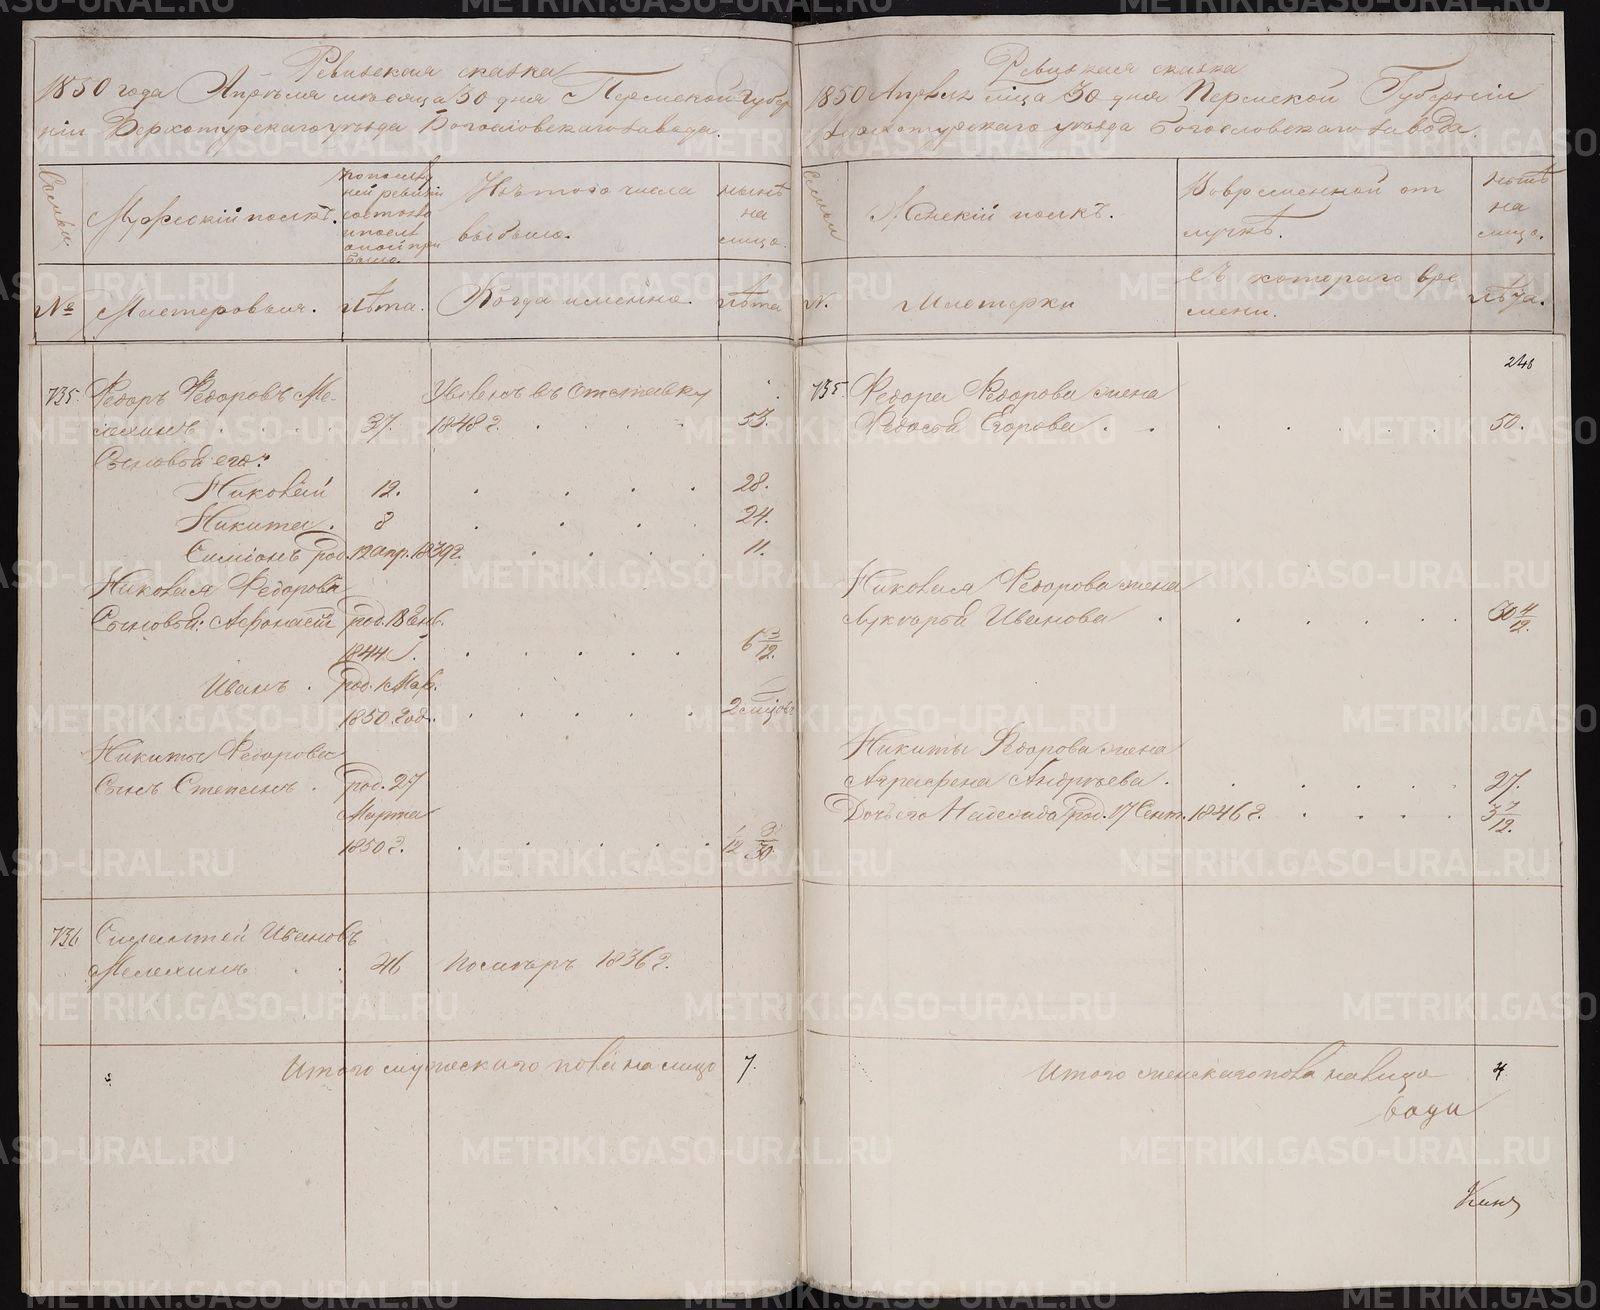 Ревизская сказка
1850 года Апреля месяца 30 дня Пермской Губер
ніи Верхотурскаго уѣзда Богословскаго завода.
Семьи
Мужескій полъ.
По послѣд
ней ревизіи
состояло
и послѣ
оной при
было.
Изъ того числа
выбыло.
нынѣ
на
лицо.
№
Мастеровыя.
лѣта.
Когда именно.
лѣта
735.
Федоръ Федоровъ Ме-
лехинъ
37.
Уволенъ въ отставку
1848 г.
53.
Сыновья его:
Николай
12.
28.
Никита.
8
24.
Симіонъ род. 12 апр. 1839 г.
11.
Николая Федорова
Сыновья: Афонасій
род. 18 Янв.
1844 г.
6 3/12.
Иванъ.
род. 1 Мар.
1850 год.
2 мѣсяц
Никиты Федорова
Сынъ Степанъ.
род. 27
Марта
1850 г.
1/12 3/30
736
Ивановъ
Мелехинъ
46
Померъ 1836 г.
Итого мужескаго пола на лицо
7.
Ревизская сказка
1850 Апреля мѣсяца 30 дня Пермской Губерніи
Верхотурскаго уѣзда Богословскаго завода.
Семьи
Женскій полъ.
Во временной от
лучкѣ.
нынѣ
на
лицо.
№.
Мастерки
Съ котораго вре
мени.
лѣта.
246
735.
Федора Федорова жена
Федосья Егорова.
50.
Николая Федорова жена
Лукерья Иванова
30 4/12.
Никиты Федорова жена
Аграфена Андреева.
27.
Дочь его Надежда род. 17 Сент. 1846 г.
3 7/12.
Итого женскаго пола на лицо
4